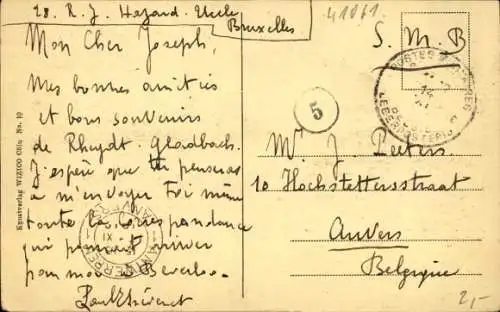 28. R. J. Hazard. Uccle
Bruxelles
41061
Mon Cher Joseph,
Mes bonnes amitiés
et bons souvenirs
de Rheydt-Gladbach.
J'espère que tu penseras
à m'envoyer toi même
toute la correspondance
qui pourrait arriver
pour moi à Beverloo.
S. M. B
5
Mr J. Peeters
10 Hochstettersstraat
Anvers
Belgique
2,-
Kunstverlag WIZICO Cöln No. 10
POSTES MILITAIRES
LEGERPOSTERIJ
ANTWERPEN
ANVERS
XI